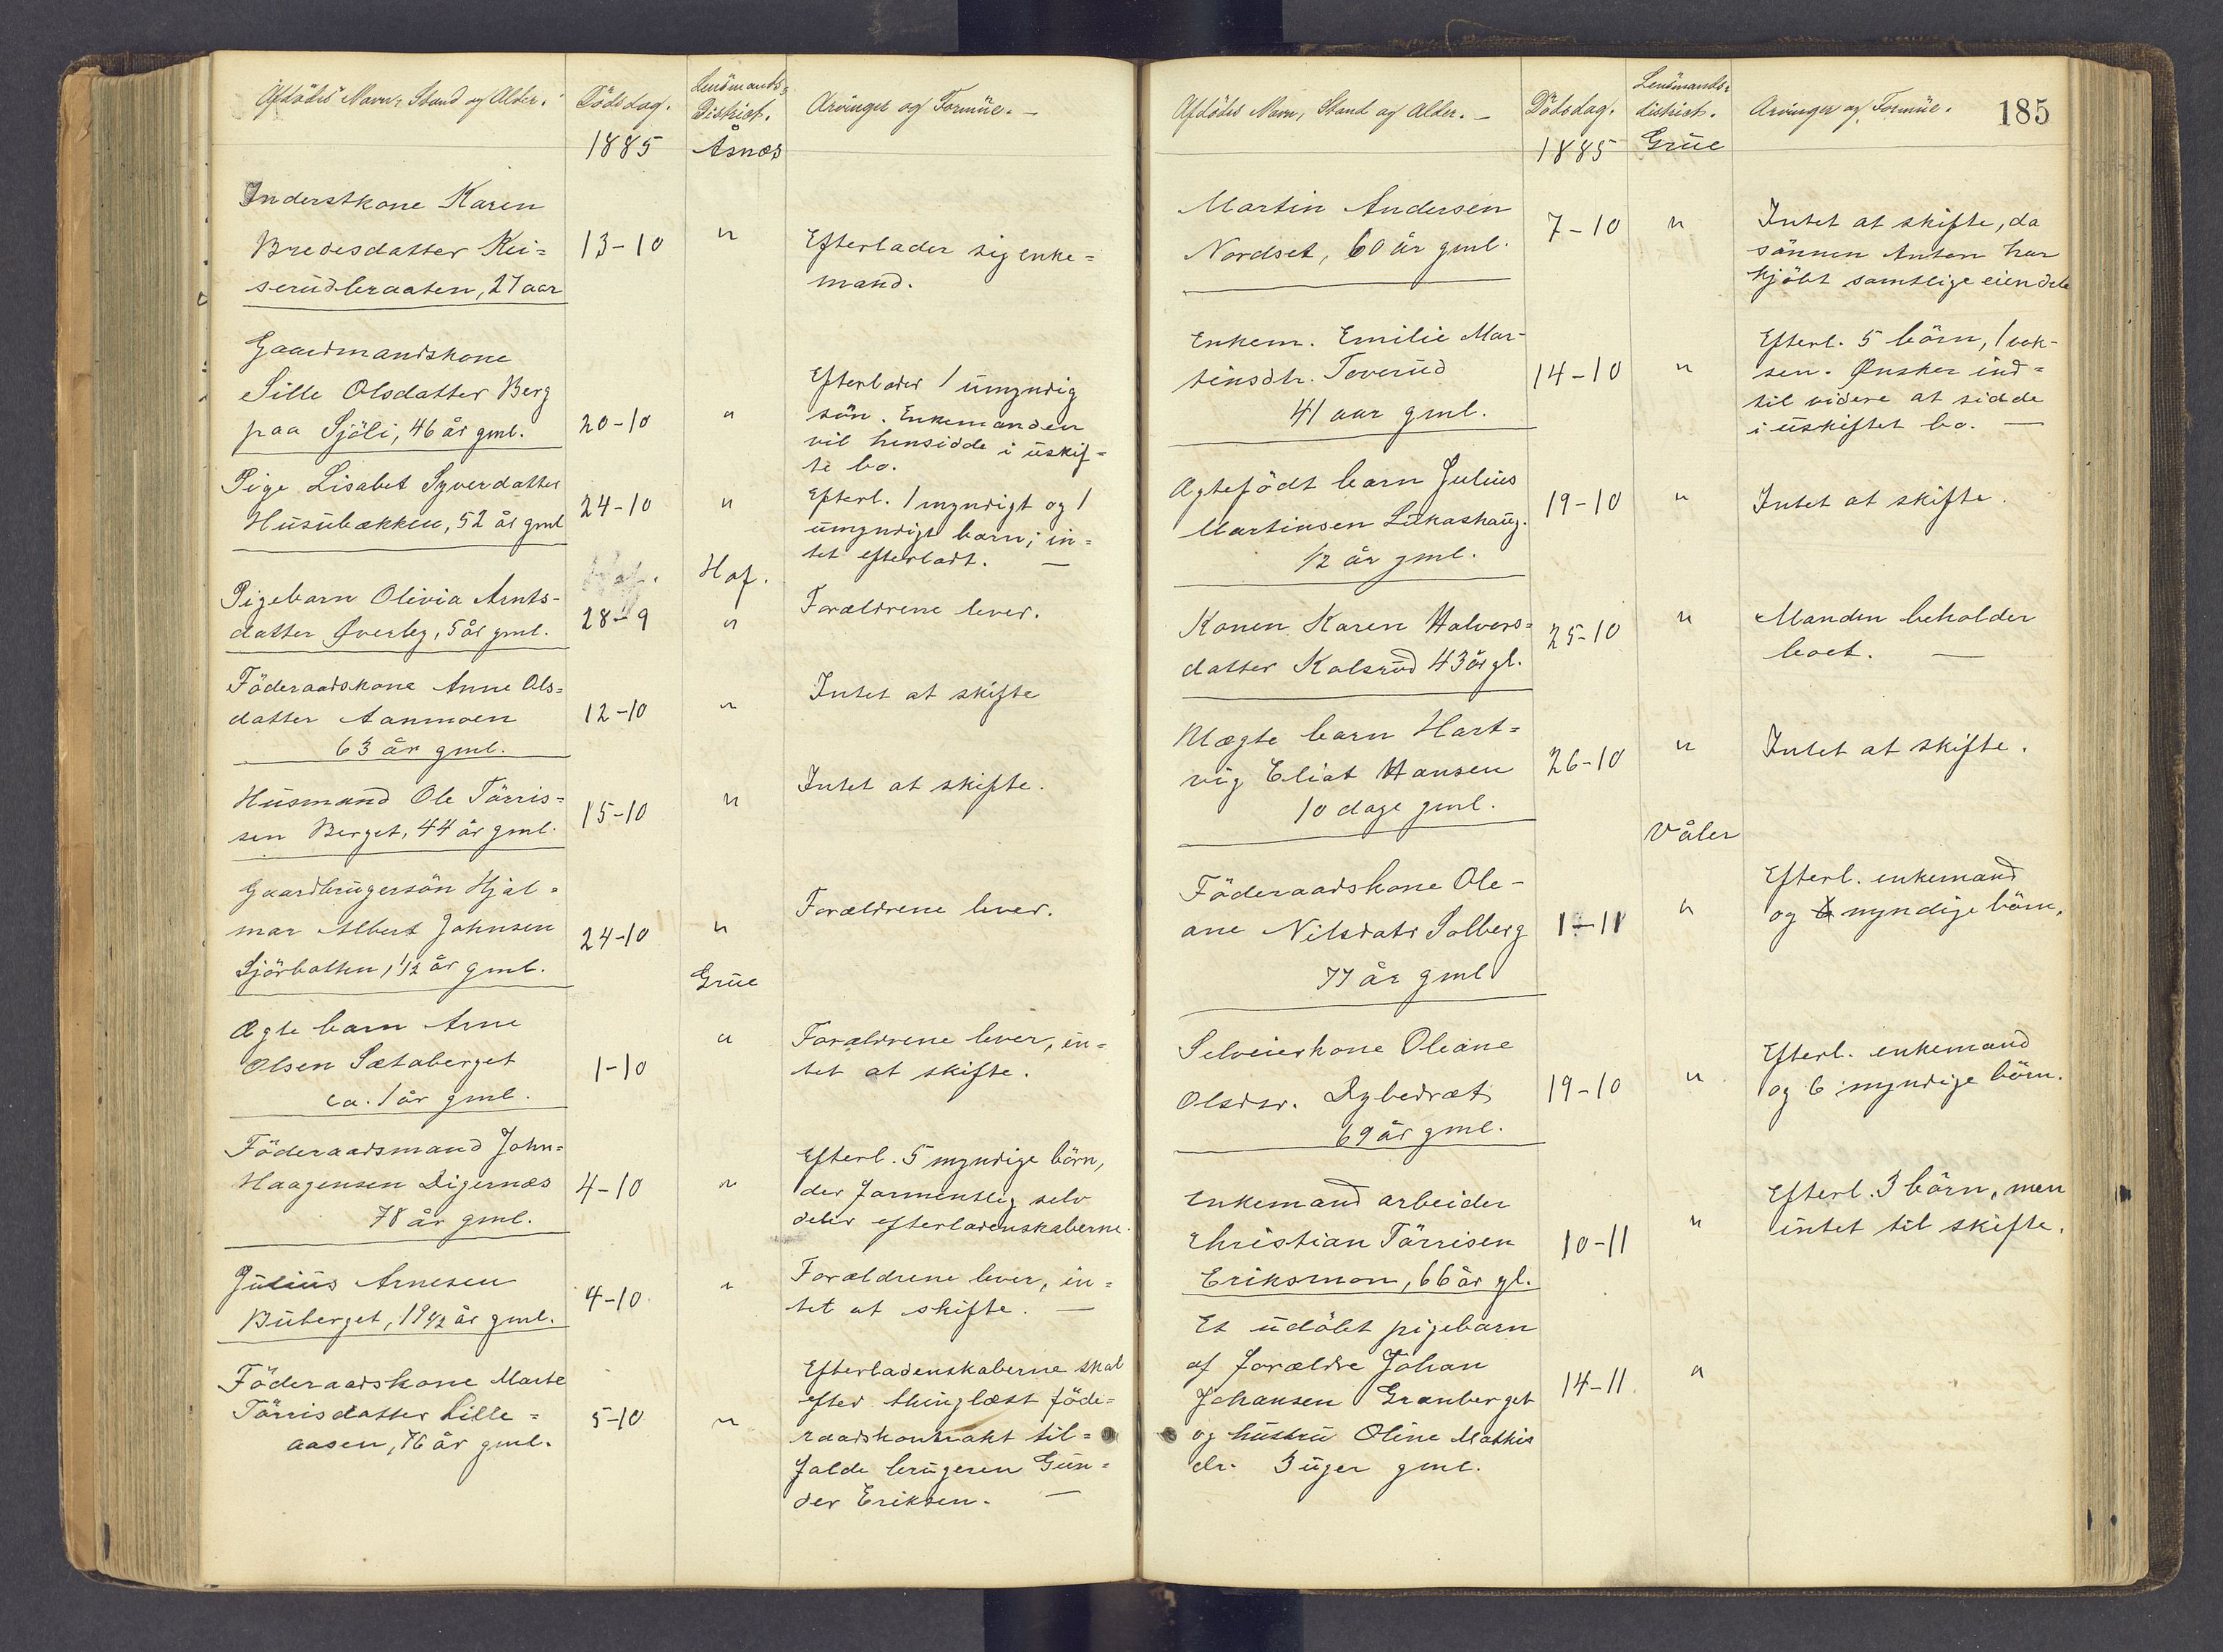 Afdödes Navn, Stand og Alder.
Dödsdag.
Lensmands-
District.
Arvinger og Formüe. –
1885
Åsnæs
Inderstkone Karen
Bredesdatter Kei=
serüdbraaten, 27 aar
13-10
"
Efterlader sig enke=
mand.
Gaardmandskone
Sille Olsdatter Berg
paa Sjöli, 46 år gml.
20-10
"
Efterlader 1 ümyndig
sön. Enkemanden
vil hensidde i üskif=
te bo.
Pige Lisabet Syverdatter
Husübækken, 52 år gml
24-10
"
Efterl. 1 myndigt og 1
ümyndigt barn; in=
tet efterladt. –
Hof.
Pigebarn Olivia Arnts-
datter Øverby, 5 år gml.
28-9
"
Forældrene lever.
Föderaadskone Anne Ols=
datter Aanmoen
63 år gml.
12-10
"
Intet at skifte
Hüsmand Ole Törris=
sen Berget, 44 år gml.
15-10
"
Intet at skifte.
Gaardbrügersön Hjal=
mar Albert Johnsen
Sjörbotten, 1/2 år gml.
24-10
"
Forældrene lever.
Grüe
Ægte barn Arne
Olsen Sætaberget
ca. 1 år gml.
1-10
"
Forældrene lever, in=
tet at skifte.
Föderaadsmand John=
Haagensen Digernæs
78 år gml.
4-10
"
Efterl. 5 myndige börn,
der formentlig selv
deler efterladenskaberne.
Jülius Arnesen
Büberget, 19 1/2 år gml.
4-10
"
Forældrene lever, in=
tet at skifte. –
Föderaadskone Marte
Törrisdatter Lille=
aasen, 76 år gml.
5-10
"
Efterladenskaberne skal
efter thinglæst föde=
raadskontrakt til=
falde brügeren Gün=
der Eriksen. –
Afdödes Navn, Stand og Alder. –
Dödsdag.
Lensmands-
district.
Arvinger og Formüe.
185
1885
Grüe
Martin Andersen
Nordset, 60 år gml.
7-10
"
Intet at skifte, da
sönnen Anton har
kjöbt samtlige eiendele
Enkem. Emilie Mar-
tinsdtr. Toverüd
41 aar gml.
14-10
"
Efterl. 5 börn, 1 vok-
sen. Ønsker ind=
til videre at sidde
i üskiftet bo. –
Ægtefödt barn Julius
Martinsen Lükashaüg.
1/2 år gml.
19-10
"
Intet at skifte.
Konen Karen Halvors=
datter Kolsrüd 43 år gl.
25-10
"
Manden beholder
boet. –
Uægte barn Hart=
vig Eliat Hansen
10 dage gml.
26-10
"
Intet at skifte.
Våler
Föderaadskone Ole-
ane Nilsdatr Solberg
77 år gml
1-11
"
Efterl. enkemand
og 6 myndige börn.
Selveierkone Oleane
Olsdtr. Dybedræt
69 år gml.
19-10
"
Efterl. enkemand
og 6 myndige börn.
Enkemand arbeider
Christian Törrisen
Eriksmon, 66 år gl.
10-11
"
Efterl. 3 börn, men
intet til skifte.
Et üdöbt pigebarn
af forældre Johan
Johansen Granberget
og hüstrü Oline Mathis
dr. 3 üger gml.
14-11.
"